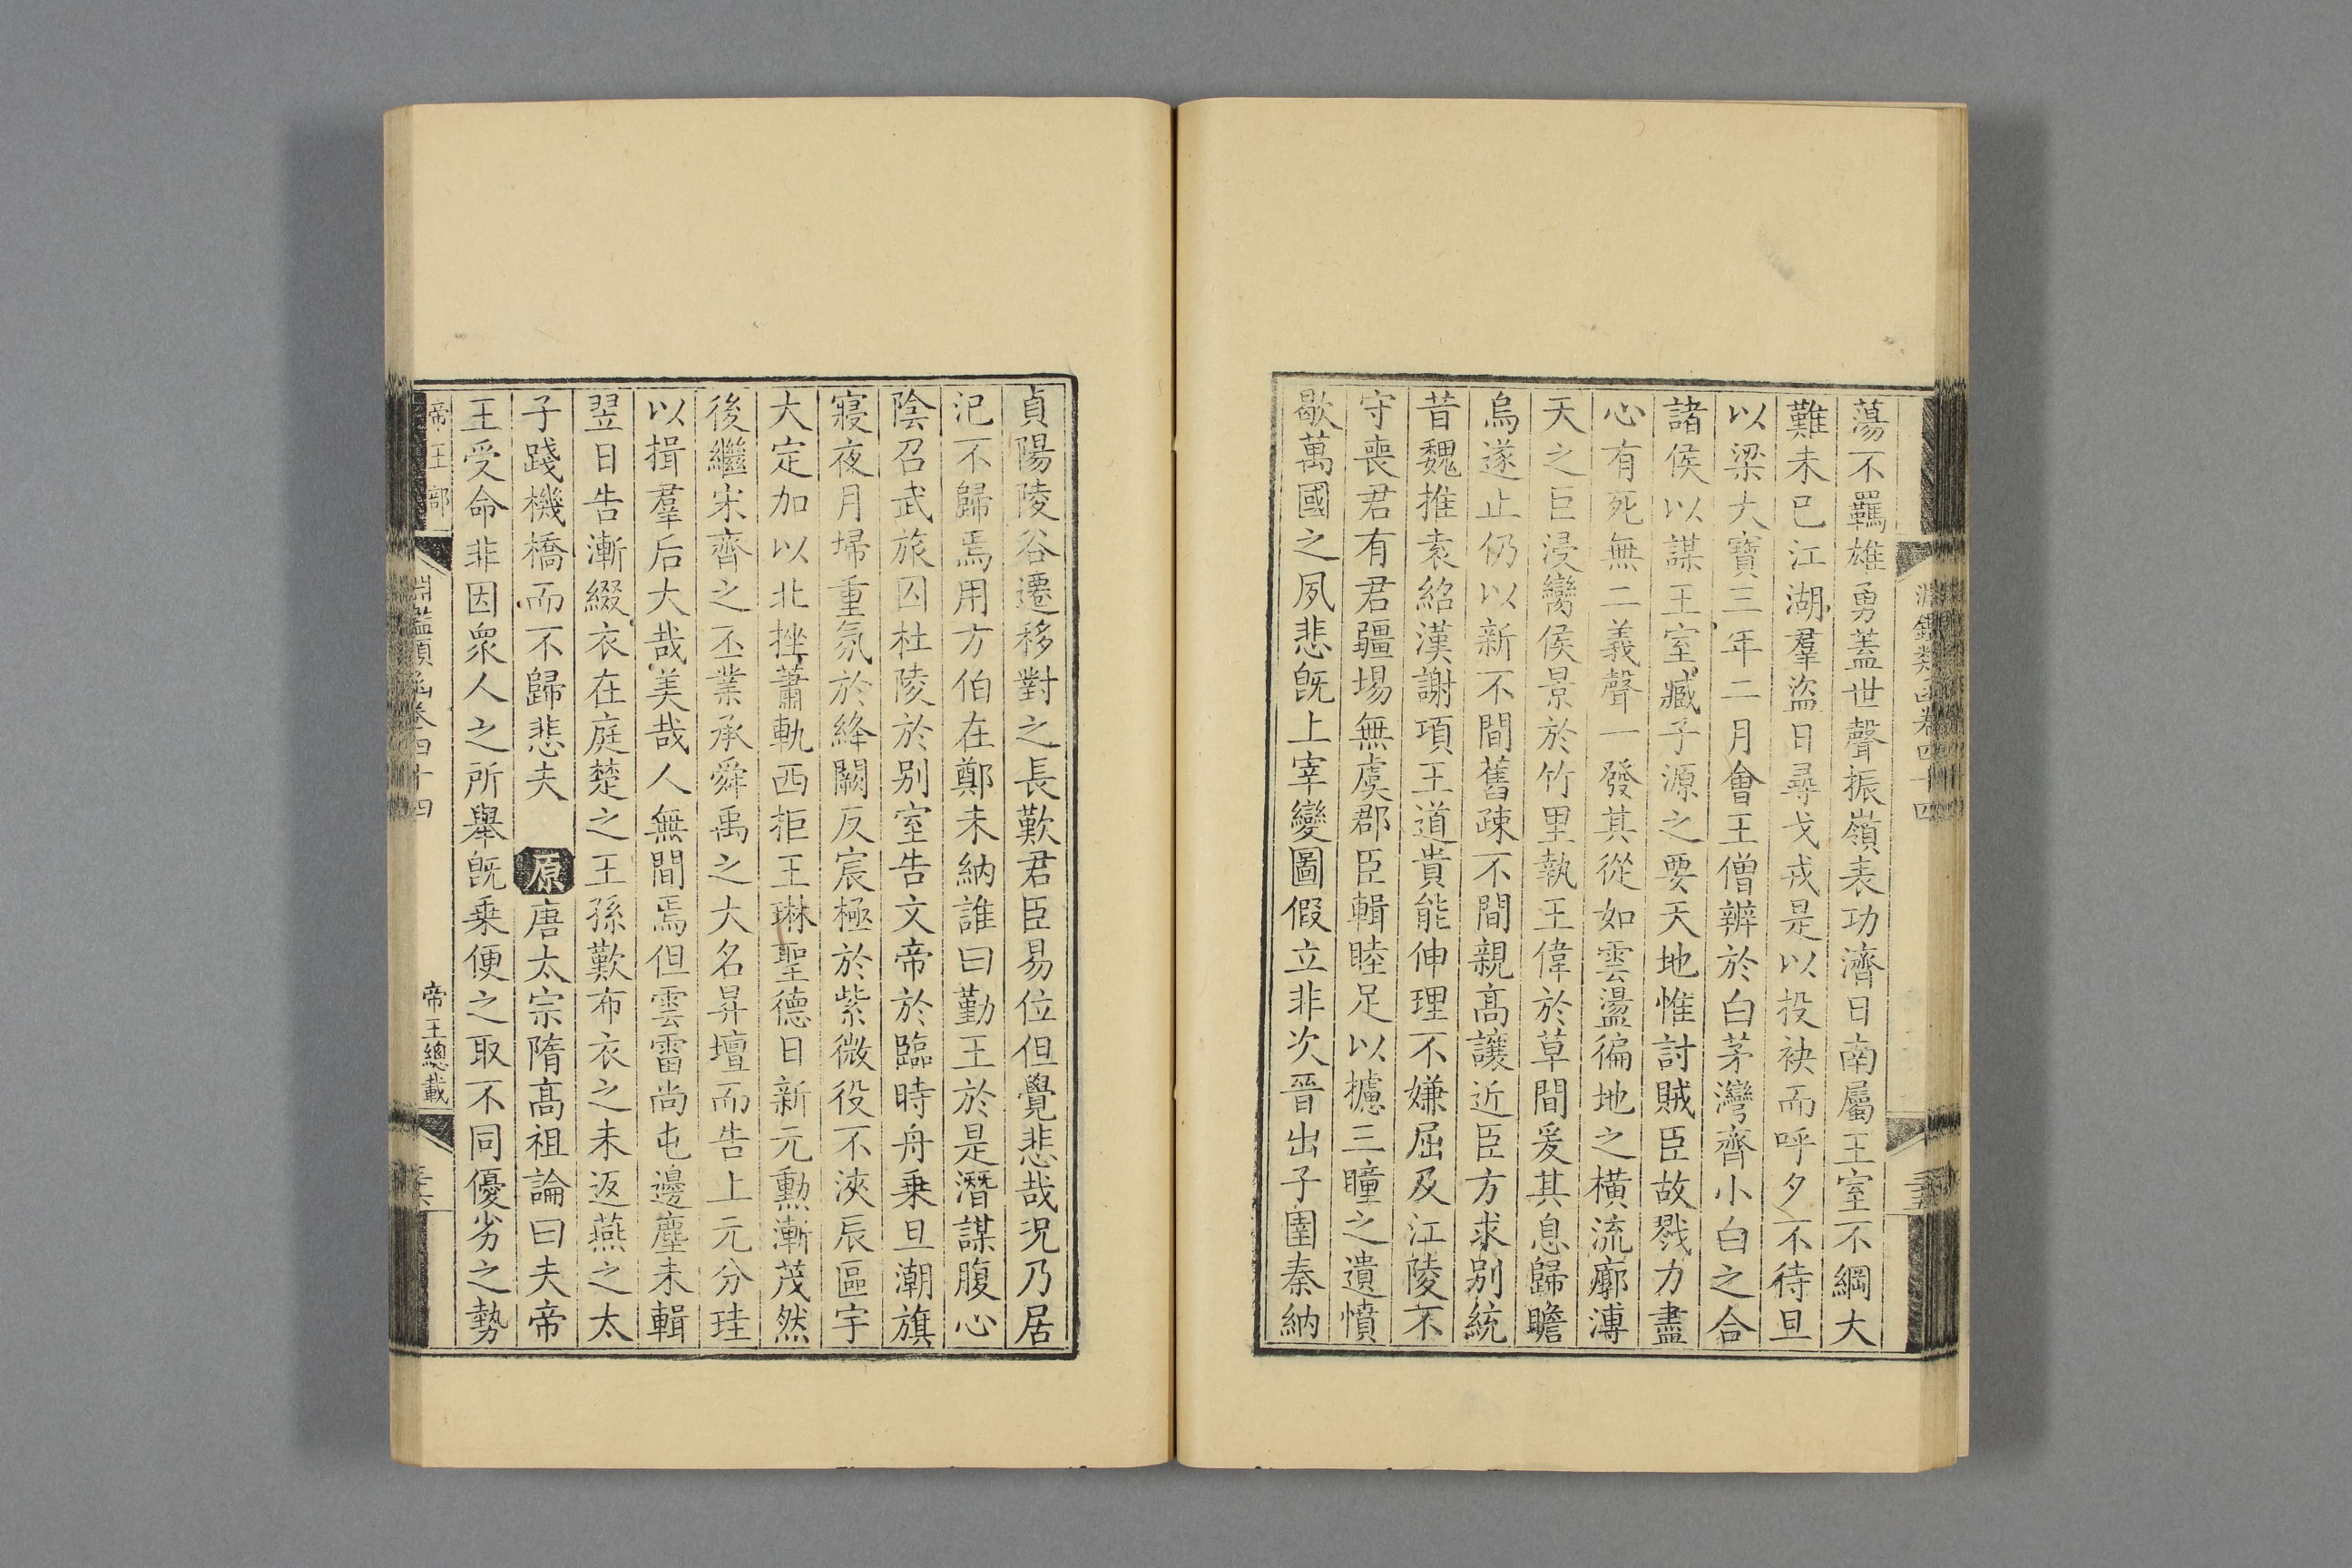 蕩不羈雄勇蓋世聲振嶺表功濟日南屬王室不綱大
難未已江湖羣盜日尋戈戎是以投袂而呼夕不待旦
以梁大寶三年二月會王僧辨於白茅灣齊小白之合
諸侯以謀王室臧子源之要天地惟討賊臣故戮力盡
心有死無二義聲一發其從如雲盪徧地之橫流廓溥
天之巨浸臠侯景於竹里執王偉於草間爰其息歸瞻
烏遂止仍以新不間舊疎不間親高讓近臣方求別統
昔魏推袁紹漢謝項王道貴能伸理不嫌屈及江陵不
守喪君有君疆場無虞郡臣輯睦足以攄三瞳之遺憤
歇萬國之夙悲旣上宰變圖假立非次晉出子圉秦納
貞陽陵谷遷移對之長歎君臣易位但覺悲哉況乃居
氾不歸焉用方伯在鄭未納誰曰勤王於是潛謀腹心
陰召武旅囚杜陵於別室告文帝於臨時舟乗旦潮旗
寢夜月埽重氛於絳闕反宸極於紫微役不浹辰區宇
大定加以北挫蕭軌西拒王琳聖德日新元勳漸茂然
後繼宋齊之丕業承舜禹之大名昇壇而告上元分珪
以揖羣后大哉美哉人無間焉但雲雷尚屯邊塵未輯
翌日告漸綴衣在庭楚之王孫歎布衣之未返燕之太
子踐機橋而不歸悲夫 原唐太宗隋高祖論曰夫帝
王受命非因衆人之所舉旣乗便之取不同優劣之勢
帝王部 淵鑑類函卷四十四 帝王總載